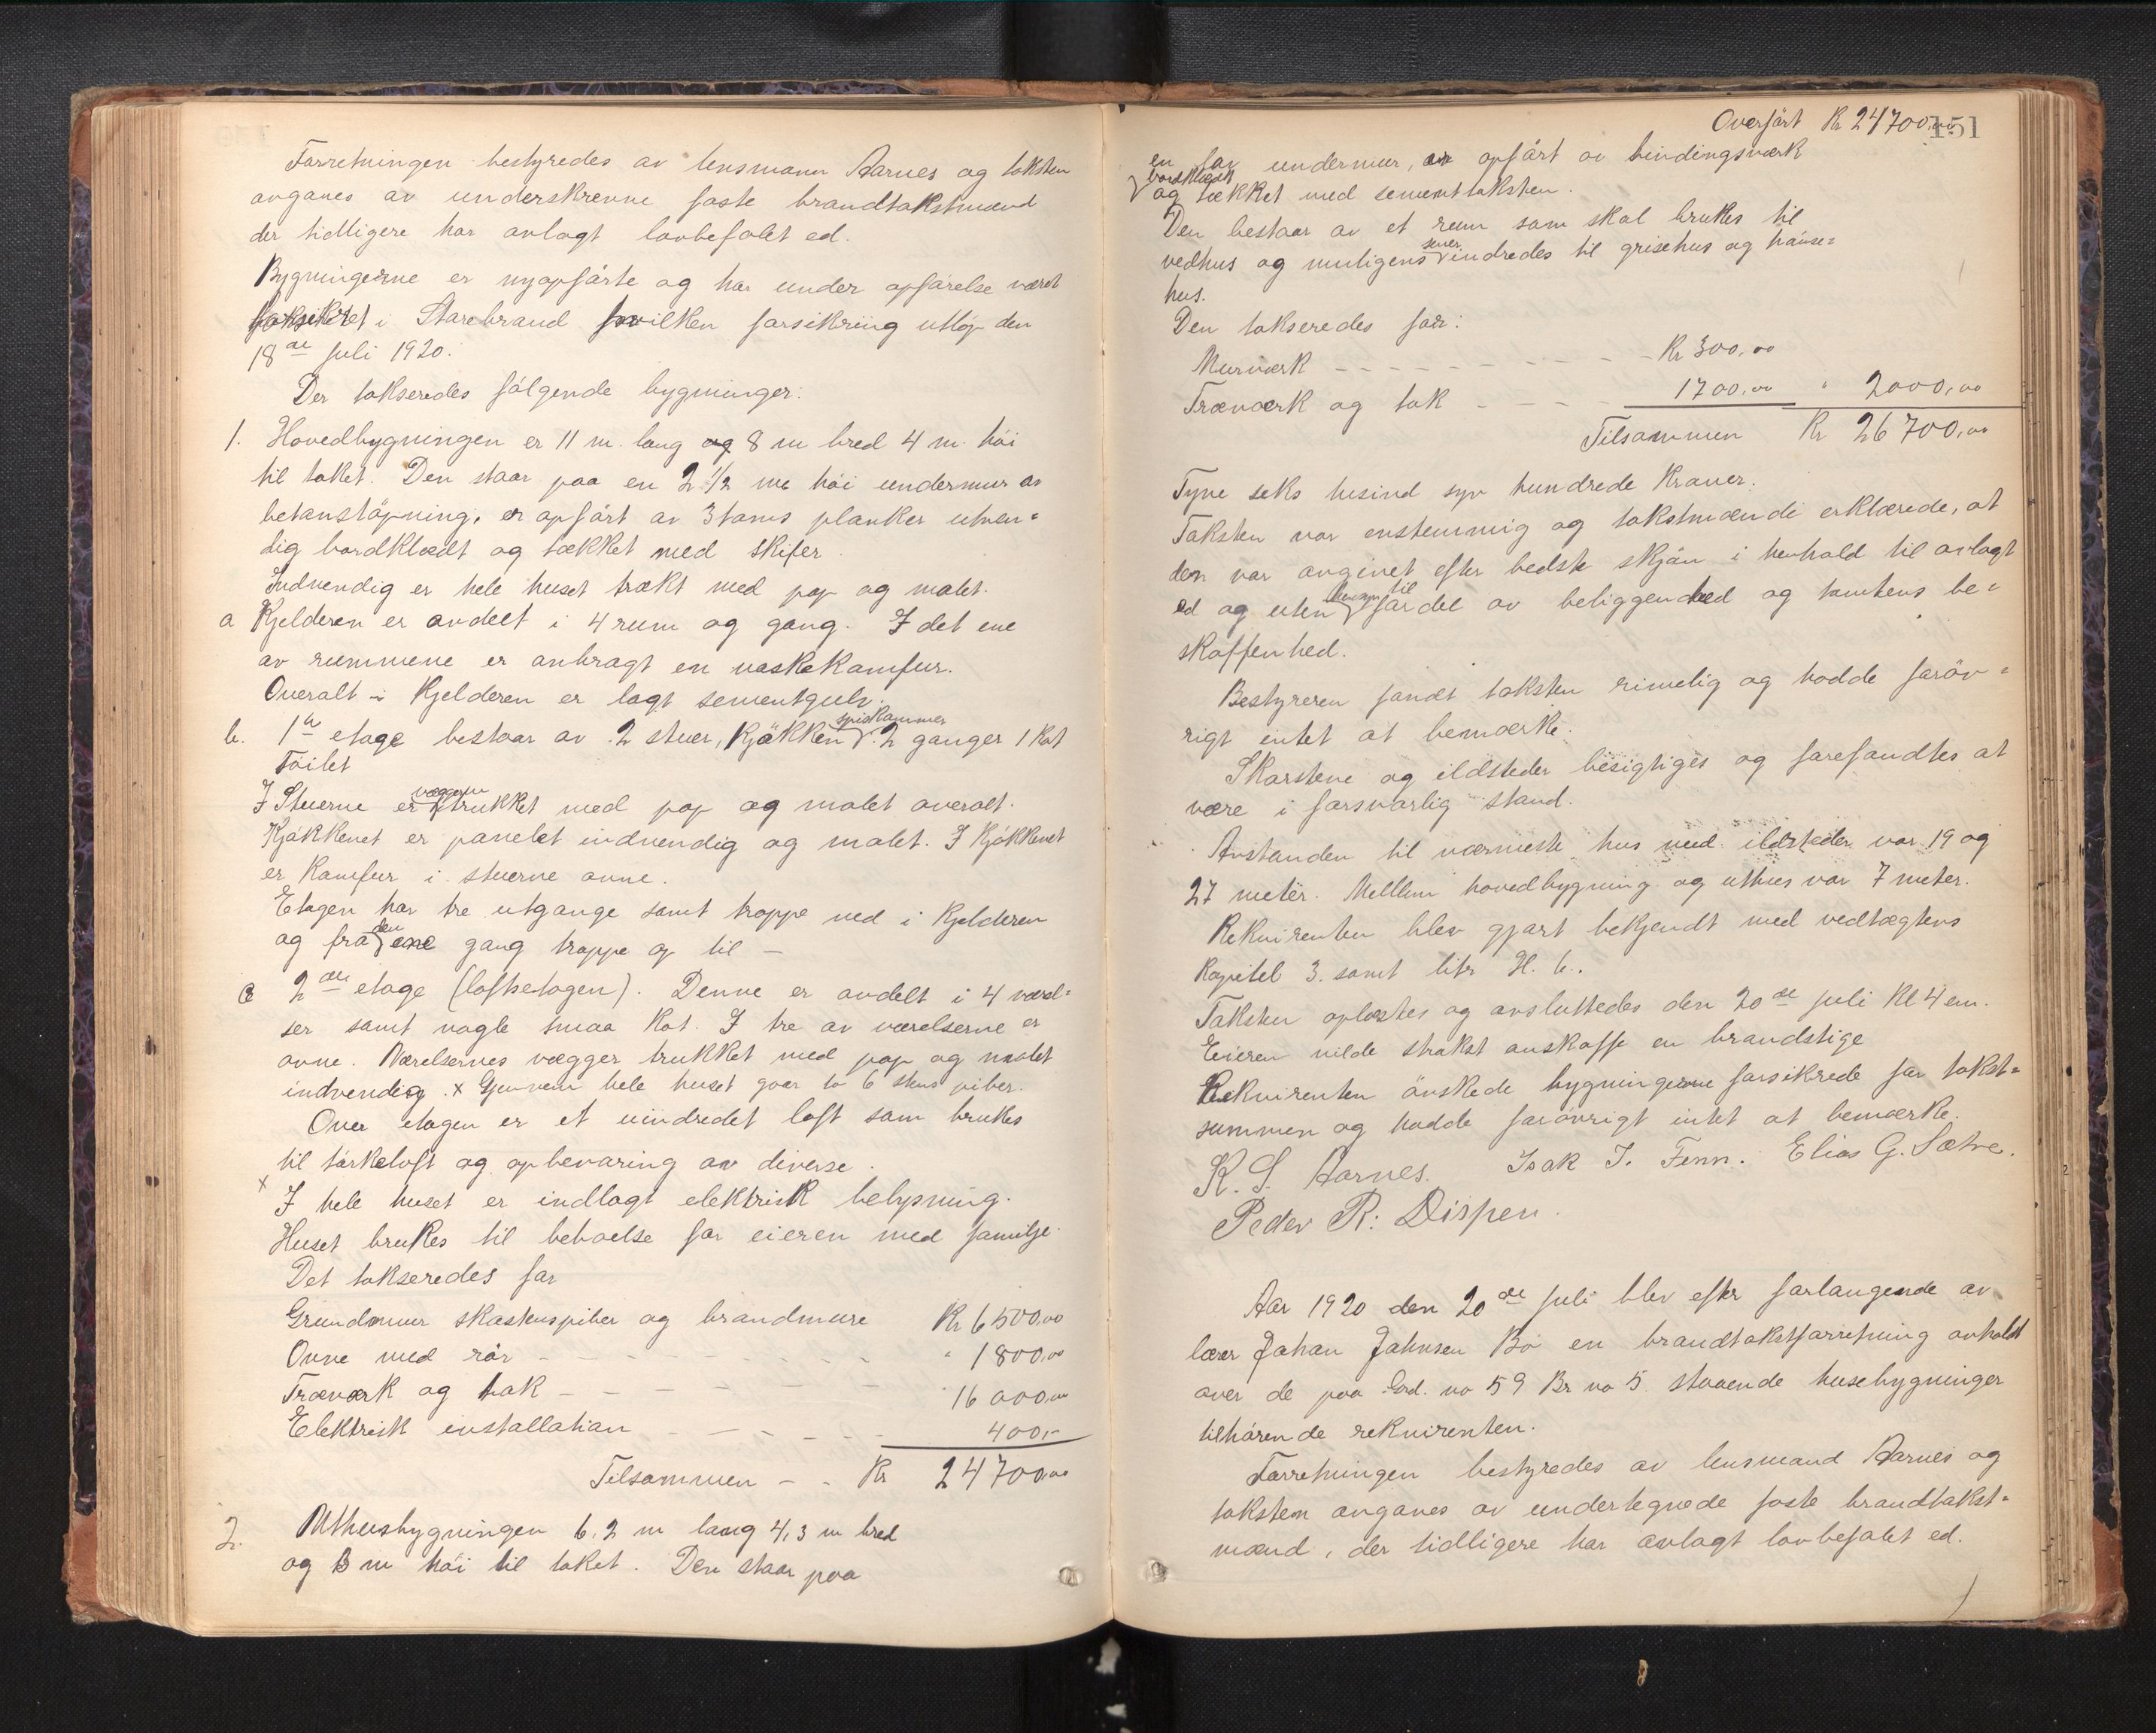 Forretningen bestyredes av lensmann Aarnes og taksten
avgaves av underskrevne faste brandtakstmænd
der tidligere har avlagt lovbefalet ed.
Bygningerne er nyopførte og har under opførelse været
forsikret i Storebrand hvilken forsikring utløp den
18de juli 1920.
Der takseredes følgende bygninger:
1. Hovedbygningen er 11 m. lang og 8 m bred 4 m. høi
til taket. Den staar paa en 2 1/2 m høi undermur av
betonstøpning, er opført av 3 toms planker utven=
dig bordklædt og tækket med skifer
Indvendig er hele huset trækt med pap og malet.
a Kjelderen er avdelt i 4 rum og gang. I det ene
av rummene er anbragt en vaskekomfur.
Overalt i kjelderen er lagt sementgulv.
b. 1ste etage bestaar av 2 stuer, kjøkken spiskammer 2 ganger 1 kot
Toilet
I Stuerne er væggene trukket med pap og malet overalt.
Kjøkkenet er panelet indvendig og malet. I kjøkkenet
er komfur i stuerne ovne.
Etagen har tre utgange samt trappe ned i kjelderen
og fra den ene gang trappe op til —
c 2den etage (loftsetagen). Denne er avdelt i 4 værel=
ser samt nogle smaa kot. I tre av værelserne er
ovne. Værelsernes vægger trukket med pap og malet
indvendig. x Gjennem hele huset gaar to 6 stens piber.
Over etagen er et uindredet loft som brukes
til tørkeloft og opbevaring av diverse.
x I hele huset er indlagt elektrisk belysning.
Huset brukes til beboelse for eieren med familje.
Det takseredes for
Grundmur skorstenspiber og brandmure Kr 6500,00
Ovne med rør - - - " 1800,00
Træværk og tak - - - " 16 000,00
Elektrisk installation - - - 400,-
Tilsammen - - Kr 24700,00
2. Uthusbygningen 6,2 m lang 4,3 m bred
og 3 m høi til taket. Den staar paa
Overført Kr 24700,00 151
en lav undermur, er opført av bindingsværk
bordklædt og tækket med sementtaksten.
Den bestaar av et rum som skal brukes til
vedhus og muligens senere indredes til grisehus og hønse=
hus.
Den takseredes for:
Murværk - - - - - - - Kr 300,00
Træværk og tak - - - - 1700,00 " 2000,00
Tilsammen Kr 26 700,00
Tyve seks tusind syv hundrede Kroner.
Taksten var enstemmig og takstmændene erklærede, at
den var avgivet efter bedste skjøn i henhold til avlagt
ed og uten hensyn til fordel av beliggenhed og tomtens be=
skaffenhed.
Bestyreren fandt taksten rimelig og hadde forøv=
rigt intet at bemærke.
Skorstene og ildsteder besigtiges og forefandtes at
være i forsvarlig stand.
Avstanden til nærmeste hus med ildsteder var 19 og
27 meter. Mellem hovedbygning og uthus var 7 meter.
Rekvirenten blev gjort bekjendt med vedtægtens
kapitel 3. samt litr H. b.
Taksten oplæstes og avsluttedes den 20de juli Kl 4 em.
Eieren vilde strakst anskaffe en brandstige
Rekvirenten ønskede bygningerne forsikrede for takst=
summen og hadde forøvrigt intet at bemærke.
K. S. Aarnes. Isak I. Fenn. Elias G. Sætre.
Peder R: Dispen.
Aar 1920 den 20de juli blev efter forlangende av
lærer Johan Johnsen Bø en brandtakstforretning avholdt
over de paa Grd. no 59 Br no 5 staaende husebygninger
tilhørende rekvirenten.
Forretningen bestyredes av lensmand Aarnes og
taksten avgaves av undertegnede faste brandtakst=
mænd, der tidligere har avlagt lovbefalet ed.